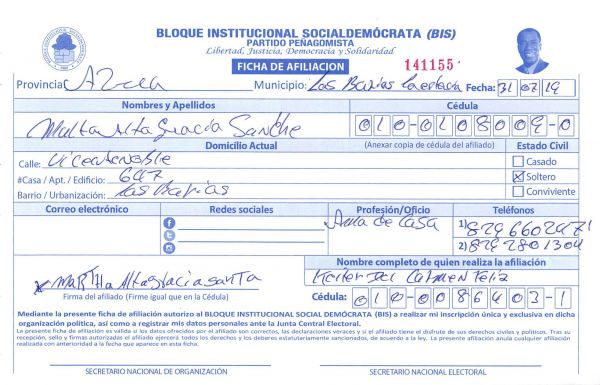 BLOQUE INSTITUCIONAL SOCIALDEMÓCRATA (BIS)
PARTIDO PEÑAGOMISTA
Libertad, Justicia, Democracia y Solidaridad
FICHA DE AFILIACION
141155
Provincia: Azua Municipio: Las Barias Fecha: 31 07 19
Nombres y Apellidos
Cédula
Malta Altagracia Sanche
010-0108009-0
Domicilio Actual
(Anexar copia de cédula del afiliado)
Estado Civil
Calle: Vicente noble
Casado
#Casa / Apt. / Edificio: 647
Soltero
Barrio / Urbanización: Las Barias
Conviviente
Correo electrónico
Redes sociales
Profesión/Oficio
Teléfonos
Ama de casa
1) 829 6602971
2) 829 2801304
Nombre completo de quien realiza la afiliación
MARTHa Altagracia santa
del Carmen Feliz
Firma del afiliado (Firme igual que en la Cédula)
Cédula: 010-0086403-1
Mediante la presente ficha de afiliación autorizo al BLOQUE INSTITUCIONAL SOCIAL DEMÓCRATA (BIS) a realizar mi inscripción única y exclusiva en dicha
organización política, así como a registrar mis datos personales ante la Junta Central Electoral.
La presente ficha de afiliación es válida si los datos ofrecidos por el afiliado son correctos, las declaraciones veraces y si el afiliado tiene el disfrute de sus derechos civiles y políticos. Tras su
recepción, sello y firmas autorizadas el afiliado ejercerá todos los derechos y los deberes estatutariamente sancionados, de acuerdo a la ley. La presente afiliación anula cualquier afiliación
realizada con anterioridad a la fecha que aparece en esta ficha.
SECRETARIO NACIONAL DE ORGANIZACIÓN
SECRETARIO NACIONAL ELECTORAL